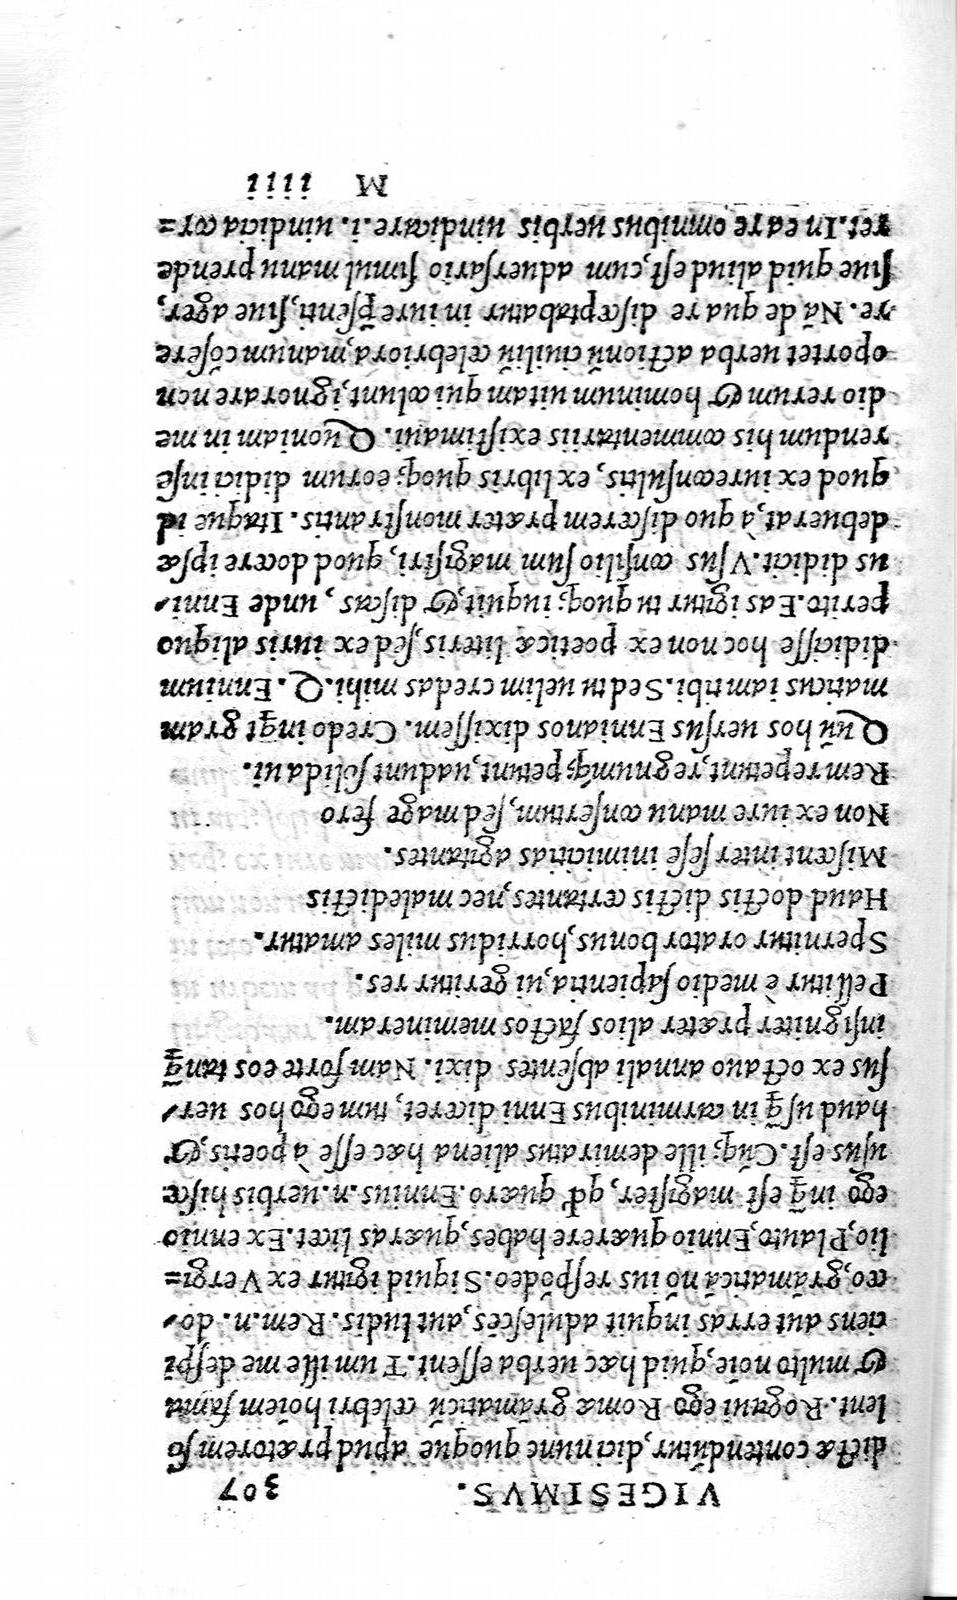 VIGESIMVS. 307
dictæ contendũtur, dici nunc quoque apud prætorem ſo
lent. Rogaui ego Romæ grãmaticũ celebri hoīem fama
& multo noīe, quid hæc uerba eſſent. Tum ille me deſpi
ciens aut erras inquit aduleſcẽs, aut ludis. Rem.n. do-
ceo, grãmaticã nõ ius reſpõdeo. Si quid igitur ex Vergi=
lio, Plauto, Ennio quærere habes, quæras licet. Ex ennio
ego inq̃ eſt magiſter, qđ quæro. Ennius.n. uerbis hiſce
uſus eſt. Cũq; ille demiratus aliena hæc eſſe à poetis, &
haud uſq̃ in carminibus Enni diceret, tum ego hos uer-
ſus ex octauo annali abſentes dixi. Nam forte eos tanq̃
inſigniter præter alios factos memineram.
Pellitur è medio ſapientia, ui geritur res.
Spernitur orator bonus, horridus miles amatur.
Haud doctis dictis certantes, nec maledictis
Miſcent inter ſeſe inimicitias agitantes.
Non ex iure manu conſertum, ſed mage fero
Rem repetunt, regnumq; petunt, uadunt ſolida ui.
Quũ hos uerſus Ennianos dixiſſem. Credo inq̃t gram
maticus iam tibi. Sed tu uelim credas mihi. Q. Ennium
didiciſſe hoc non ex poeticæ literis, ſed ex iuris aliquo
perito. Eas igitur tu quoq; inquit, & diſcas, unde Enni-
us didicit. Vſus conſilio ſum magiſtri, quod docere ipſæ
debuerat, à quo diſcerem præter monſtrantis. Itaque id
quod ex iureconſultis, ex libris quoq; eorum didici inſe
rendum his commentariis exiſtimaui. Quoniam in me
dio rerum & hominum uitam qui colunt, ignorare non
oportet uerba actionũ ciuiliũ celebriora, manum cõſere
re. Nã de qua re diſceptabatur in iure p̃ſenti, ſiue ager,
ſiue quid aliud eſt, cum aduerſario ſimul manu prende
ret. In ea re omnibus uerbis uindicare.i. uindicia cor=
M iiii